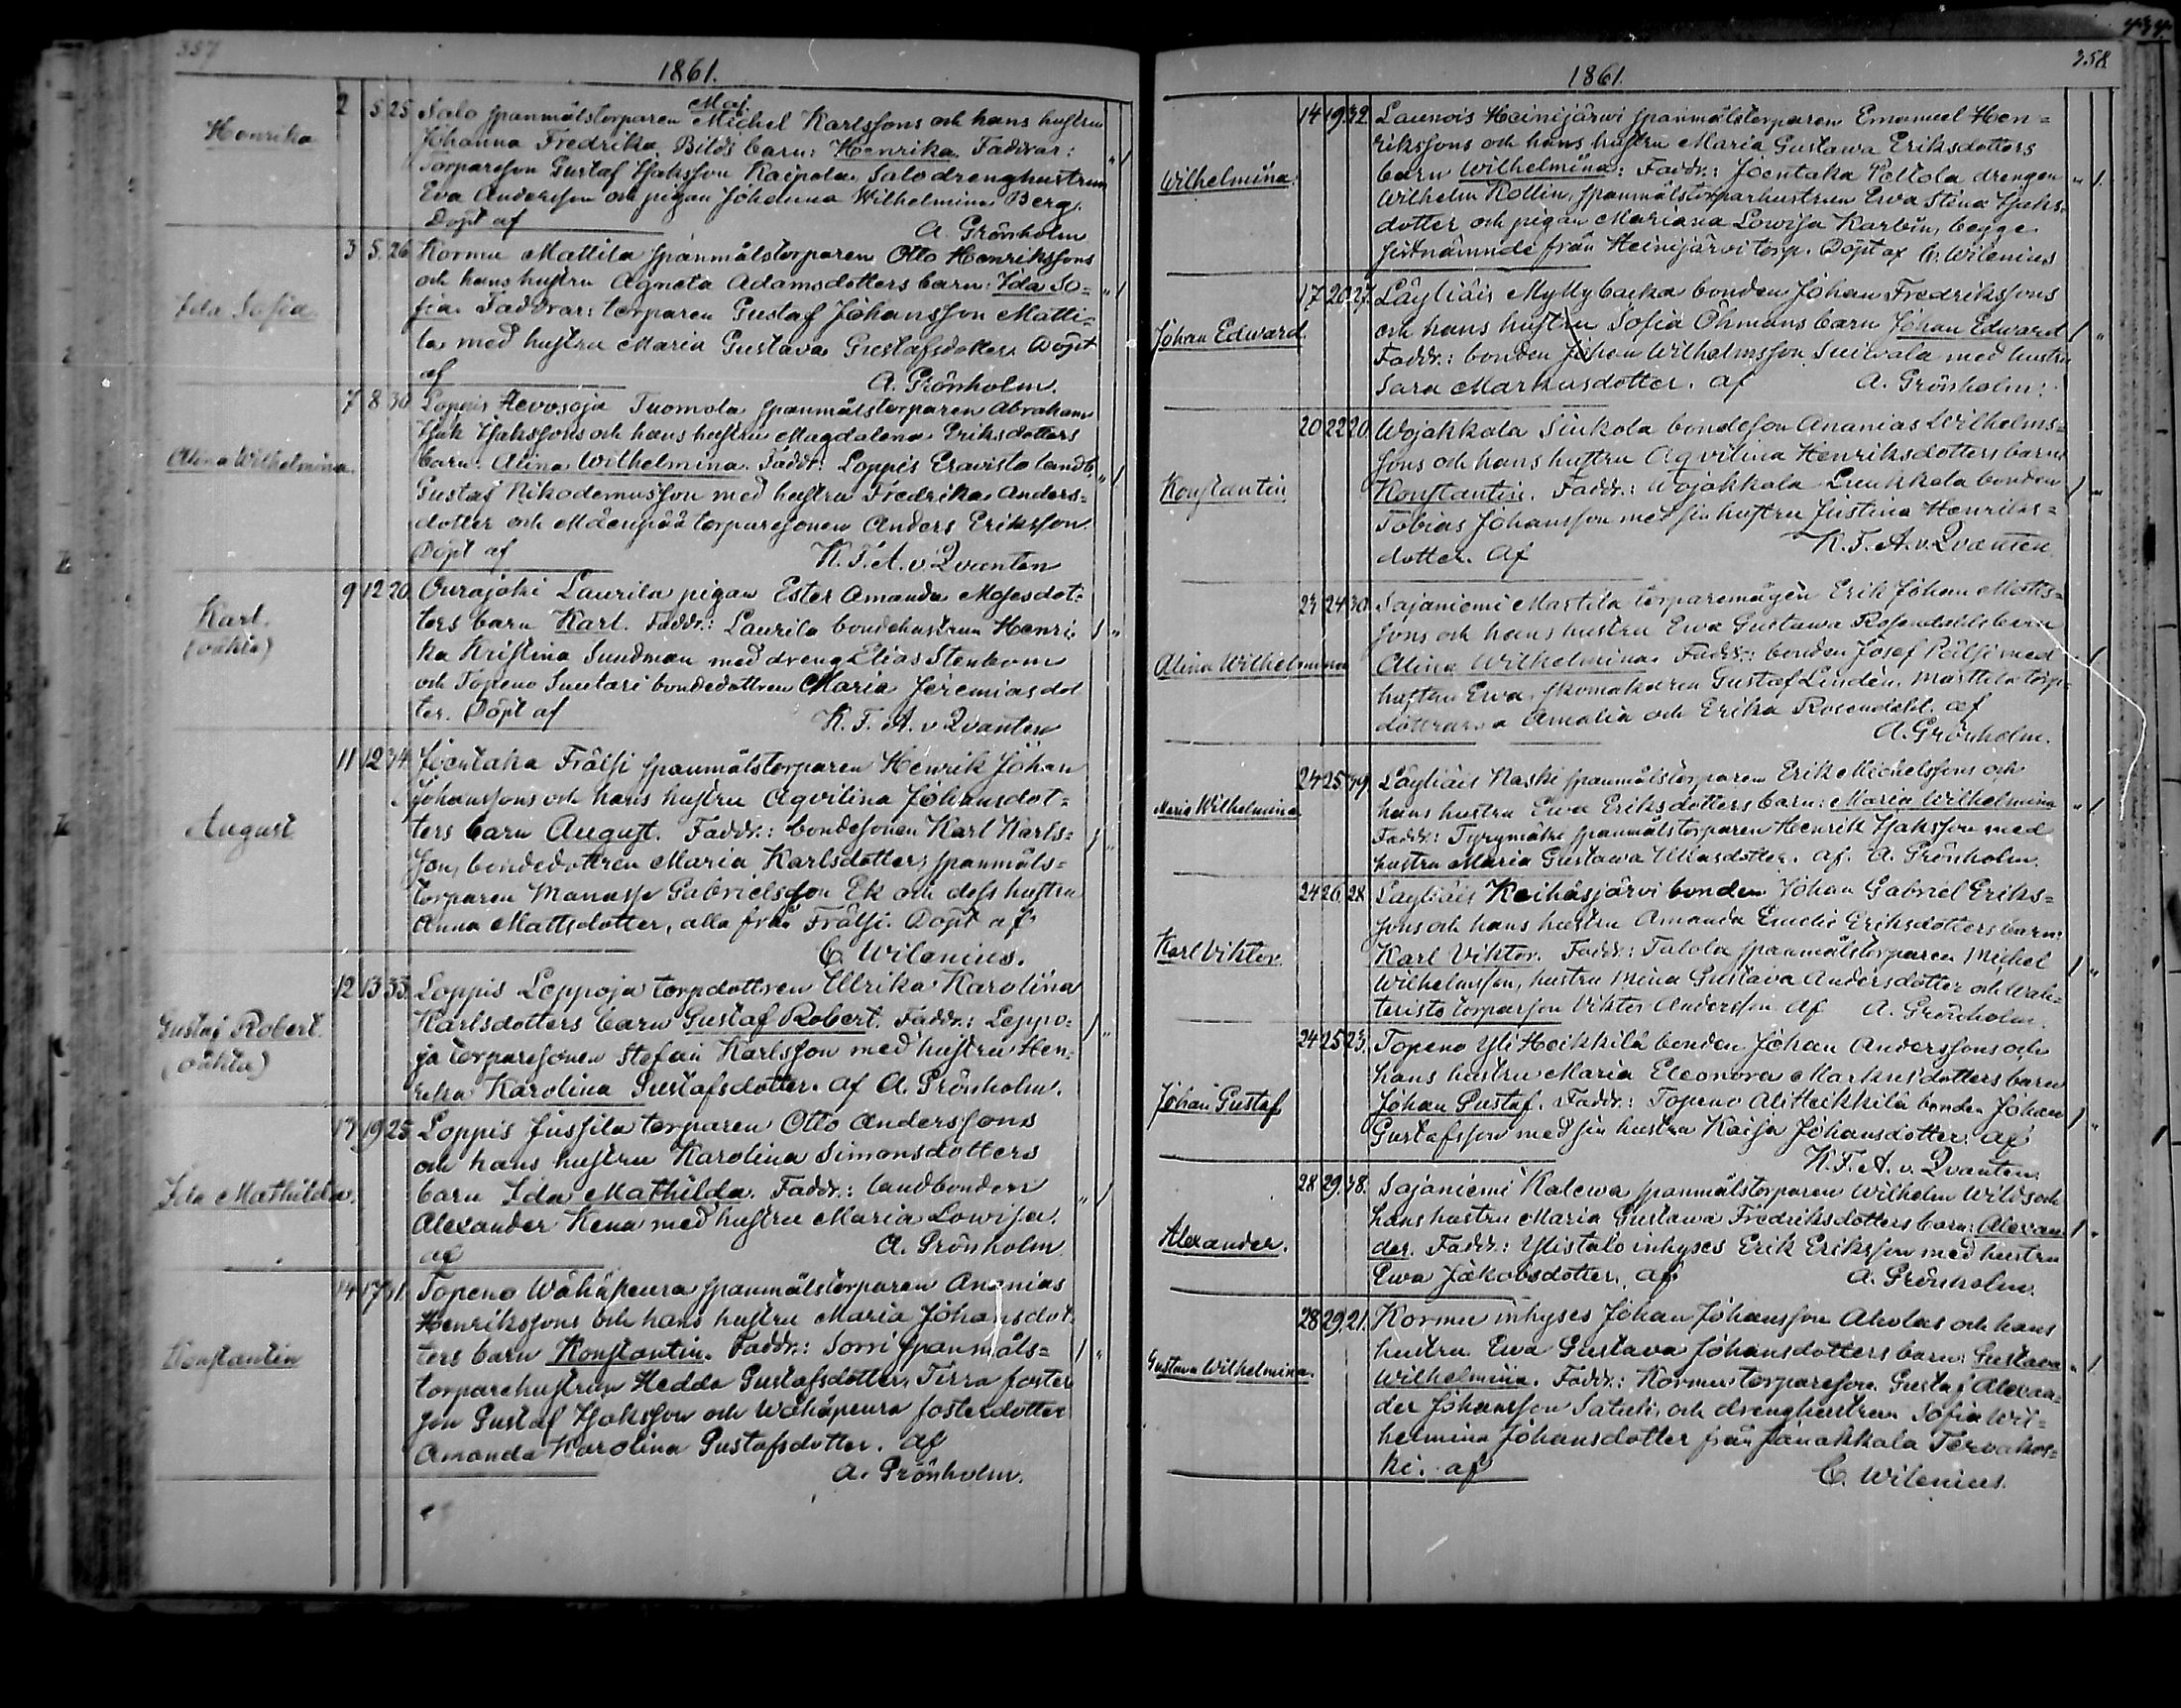 357
1861.
Maj.
Henrika
2 5 25 Salo spanmålstorparen Michel Karlssons och hans hustru
Johanna Fredrika Bilds barn: Henrika. Faddrar:
torparson Gustaf Isaksson Kaipola, Salo drenghustrun
Eva Andersson och pigan Johanna Wilhelmina Berg.
Döpt af A. Grönholm
Ida Sofia
3 5. 26 Kormu Mattila spanmålstorparen Otto Henrikssons
och hans hustru Agneta Adamsdotters barn: Ida So=
fia. Faddrar: torparen Gustaf Johansson Matti=
la med hustru Maria Gustava Gustafsdotter. Döpt
af A. Grönholm.
Alina Wilhelmina.
7 8 30 Loppis Hevosoja Tuomola spanmålstorparen Abraham
Isak Isakssons och hans hustru Magdalena Eriksdotters
barn: Alina Wilhelmina. Faddr: Loppis Eravisto landb.
Gustaf Nikodemusson med hustru Fredrika Anders=
dotter och Mäenpää torparesonen Anders Eriksson
Döpt af K. F. A. v. Qvanten
Karl.
(oäkta)
9 12 20. Ourajoki Laurila pigan Ester Amanda Mosesdot=
ters barn Karl. Faddr.: Laurila bondehustrun Henri-
ka Kristina Sundman med dreng Elias Stenbom
och Topeno Suutari bondedottren Maria Jeremiasdot
ter. Döpt af K. F. A. v. Qvanten
August
11 12 34. Joentaka Frälsi spanmålstorparen Henrik Johan
Johanssons och hans hustru Aqvilina Johansdot=
ters barn August. Faddr.: bondesonen Karl Karls=
son, bondedottren Maria Karlsdotter, spanmåls=
torparen Manasse Gabrielsson Ek och dess hustru
Anna Mattsdotter, alla från Frälsi. Döpt af
C. Wilenius.
Gustaf Robert.
(oäkta)
12 13 33. Loppis Leppoja torpdottren Ulrika Karolina
Karlsdotters barn Gustaf Robert. Faddr.: Leppo=
ja torparesonen Stefan Karlsson med hustru Hen=
rika Karolina Gustafsdotter. af A. Grönholm.
Ida Mathilda.
17 19 25 Loppis Jussila torparen Otto Anderssons
och hans hustru Karolina Simonsdotters
barn Ida Mathilda. Faddr.: landbonden
Alexander Kena med hustru Maria Lowisa.
af A. Grönholm
Konstantin
14 17 31. Topeno Wähäpeura spanmålstorparen Ananias
Henrikssons och hans hustru Maria Johansdot.
ters barn Konstantin. Faddr.: Sorri spanmåls=
torparehustrun Hedda Gustafsdotter, Tirra foster
son Gustaf Isaksson och Wähäpeura fosterdotter
Amanda Karolina Gustafsdotter. af
A. Grönholm.
358
1861.
Wilhelmina.
14 19 32. Launois Heinijärwi spanmålstorparen Emanuel Hen=
rikssons och hans hustru Maria Gustawa Eriksdotters
barn Wilhelmina: Faddr.: Joentaka Peltola drengen
Wilhelm Kollin, spanmålstorparhustrun Ewa Stina Isaks=
dotter och pigan Mariana Lowisa Karbin, begge
sistnämnde från Heinijärvi torp. Döpt af C. Wilenius
Johan Edward.
17 20. 27. Läyliäis Myllybacka bonden Johan Fredrikssons
och hans hustru Sofia Öhmans barn Johan Edward
Faddr.: bonden Johan Wilhelmsson Suiwala med hustru
Sara Markusdotter. af A. Grönholm.
Konstantin
20 22 20. Wojakkala Siukola bondeson Ananias Wilhelms=
sons och hans hustru Aqvilina Henriksdotters barn
Konstantin. Faddr.: Wojakkala Luukkala bonden
Tobias Johansson med sin hustru Justina Henriks=
dotter. af K. F. A. v. Qvanten
Alina Wilhelmina
23 24 30. Sajaniemi Martila torparemågen Erik Johan Matts=
sons och hans hustru Ewa Gustawa Rosendahls barn
Alina Wilhelmina. Faddr.: bonden Josef Pälsi med
hustru Ewa, skomakaren Gustaf Lindén, Marttila torp=
döttrarna Amalia och Erika Rosendahl. af
A. Grönholm.
Maria Wilhelmina.
24 25 49. Läyliäis Kaski spanmålstorparen Erik Michelssons och
hans hustru Ewa Eriksdotters barn: Maria Wilhelmina
Faddr.: spanmålstorparen Henrik Isaksson med
hustru Maria Gustawa dotter. af. A. Grönholm.
Karl Viktor.
24 26. 28 Läyliäis Keihäsjärvi bonden Johan Gabriel Eriks=
sons och hans hustru Amanda Emelie Eriksdotters barn:
Karl Viktor. Faddr.: Talola spanmålstorparen Michel
Wilhelmsson, hustru Mina Gustava Andersdotter och Wah=
teristo torparson Viktor Andersson af A. Grönholm.
Johan Gustaf
24 25 23. Topeno Yli Heikkilä bonden Johan Anderssons och
hans hustru Maria Eleonora Markusdotters barn
Johan Gustaf. Faddr.: Topeno Ali Heikkilä bonden Johan
Gustafsson med sin hustru Kaisa Johansdotter. af
K. F. A. v. Qvanten.
Alexander.
28 29. 38. Sajaniemi Kalewa spanmålstorparen Wilhelm Wilds och
hans hustru Maria Gustawa Fredriksdotters barn: Alexan=
der. Faddr.: Ylistalo inhyses Erik Eriksson med hustru
Ewa Jakobsdotter. af A. Grönholm.
Gustava Wilhelmina.
28 29. 21. Kormu inhyses Johan Johansson Aholas och hans
hustru Ewa Gustava Johansdotters barn: Gustava
Wilhelmina. Faddr.: Kormu torpareson Gustaf Alexan=
der Johansson Satuli, och drenghustrun Sofia Wil=
helmina Johansdotter från Janakkala Tervakos=
ki. af C. Wilenius.